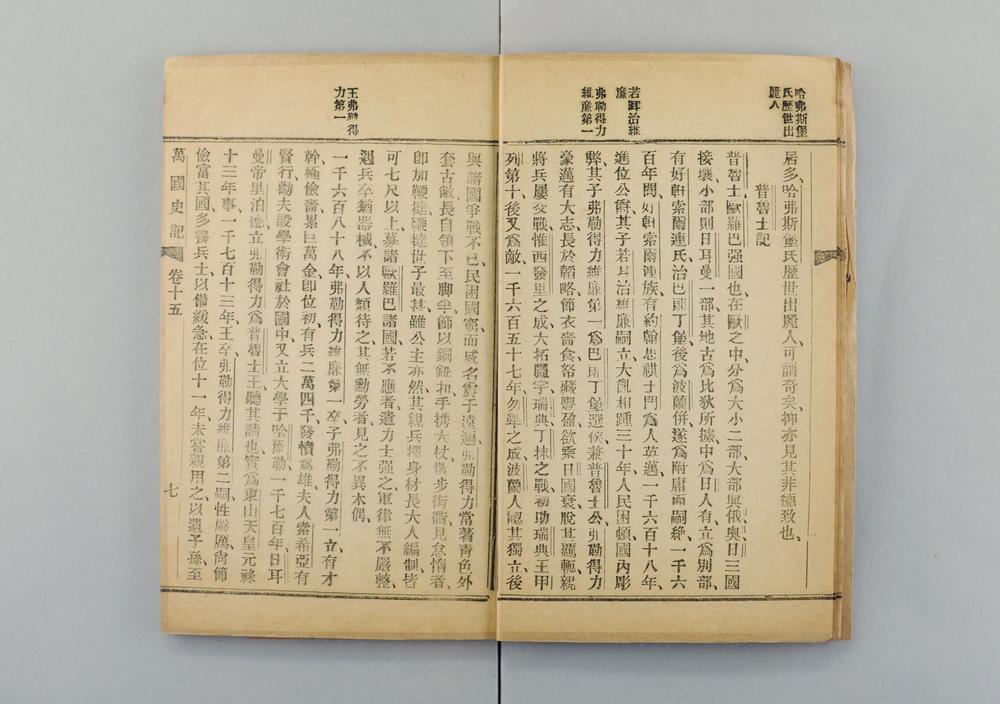 哈弗斯堡
氏歷世出
麗人
若耳治維
廉
弗勒得力
維廉第一
居多、哈弗斯堡氏歷世出麗人、可謂奇矣、抑亦見其非德致也、
普魯士記
普魯士、歐羅巴强國也、在歐之中、分爲大小二部、大部與俄奧日三國
接壤、小部則日耳曼一部、其地古爲比狄所據、中爲日人有、立爲別部、
有好軒索爾連氏治巴丁堡、後爲波蘭併、遂爲附庸、而嗣絕、一千六
百年間、好軒索爾連族有約翰思麒士門、爲人英邁、一千六百十八年、
進位公爵、其子若耳治維廉嗣立、大亂相踵、三十年人民困頓、國內彫
弊、其子弗勒得力維廉第一爲巴丁堡選侯、兼普魯士公、弗勒得力
豪邁有大志、長於韜略、節衣嗇食、帑藏豐盈、欲乘日國衰、脫其羈軛、親
將兵屢交戰、惟西發里之成、大拓疆宇、瑞典丁抹之戰、初助瑞典王甲
列第十、後又爲敵、一千六百五十七年、勿之成、波蘭人認其獨立、後
王弗勒得
力第一
與諸國爭戰不已、民困國窮、而威名震于遠邇、弗勒得力當著靑色外
套古敝、長自領下至脚半、節以銅鈕扣、手携大杖、散步街衢、見怠惰者、
卽加鞭撻、鞭撻世子最甚、雖公主亦然、其親兵擢身材長大人編制、皆
可七尺以上、募諸歐羅巴諸國、若不應者、遣力士强之、軍律無不嚴整、
遇兵卒猶器械、不以人類待之、其無勳勞者、見之不異木偶、
一千六百八十八年、弗勒得力維廉第一卒、子弗勒得力第一立、有才
幹、極儉嗇、累巨萬金、卽位初、有兵二萬四千、發憤爲雄、夫人索希亞有
賢行、勸夫設學術會社於國中、又立大學于哈爾勒、一千七百年、日耳
曼帝里泊德立弗勒得力爲普魯士王、聽其請也、實爲東山天皇元祿
十三年事、一千七百十三年、王卒、弗勒得力維廉第二嗣、性嚴厲、尙節
儉、富其國、多養兵士、以備緩急、在位十一年、未嘗親用之、以遺子孫、至
萬國史記
卷十五
七